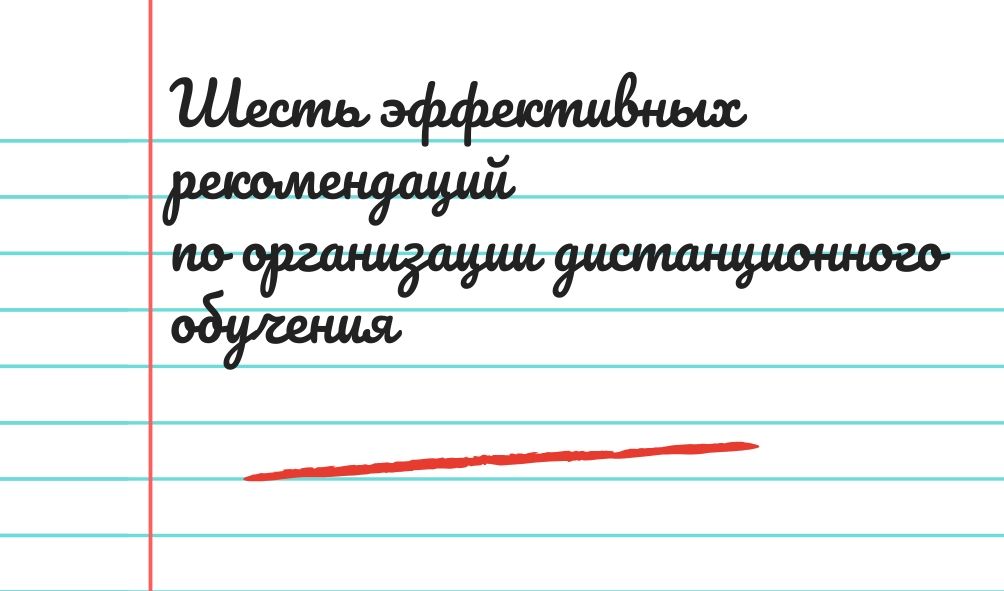 Шесть эффективных
рекомендаций
по организации дистанционного
обучения